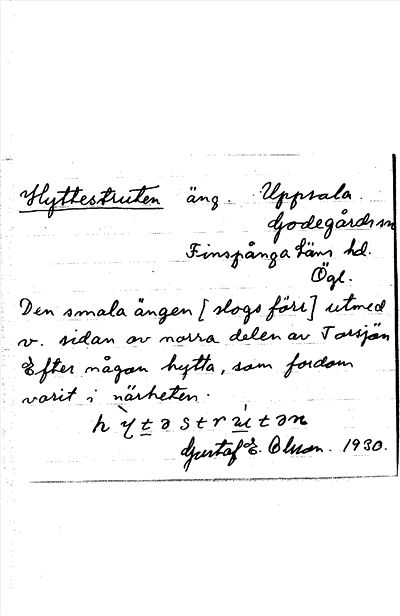 Hyttestruten äng. Uppsala
Godegårds sn
Finspånga läns hd.
Ögl.
Den smala ängen [slogs förr] utmed
v. sidan av norra delen av Torsjön
Efter någon hytta, som fordom
varit i närheten.
hỳt̲əstrù̲tən
Gustaf E. Olsson. 1930.